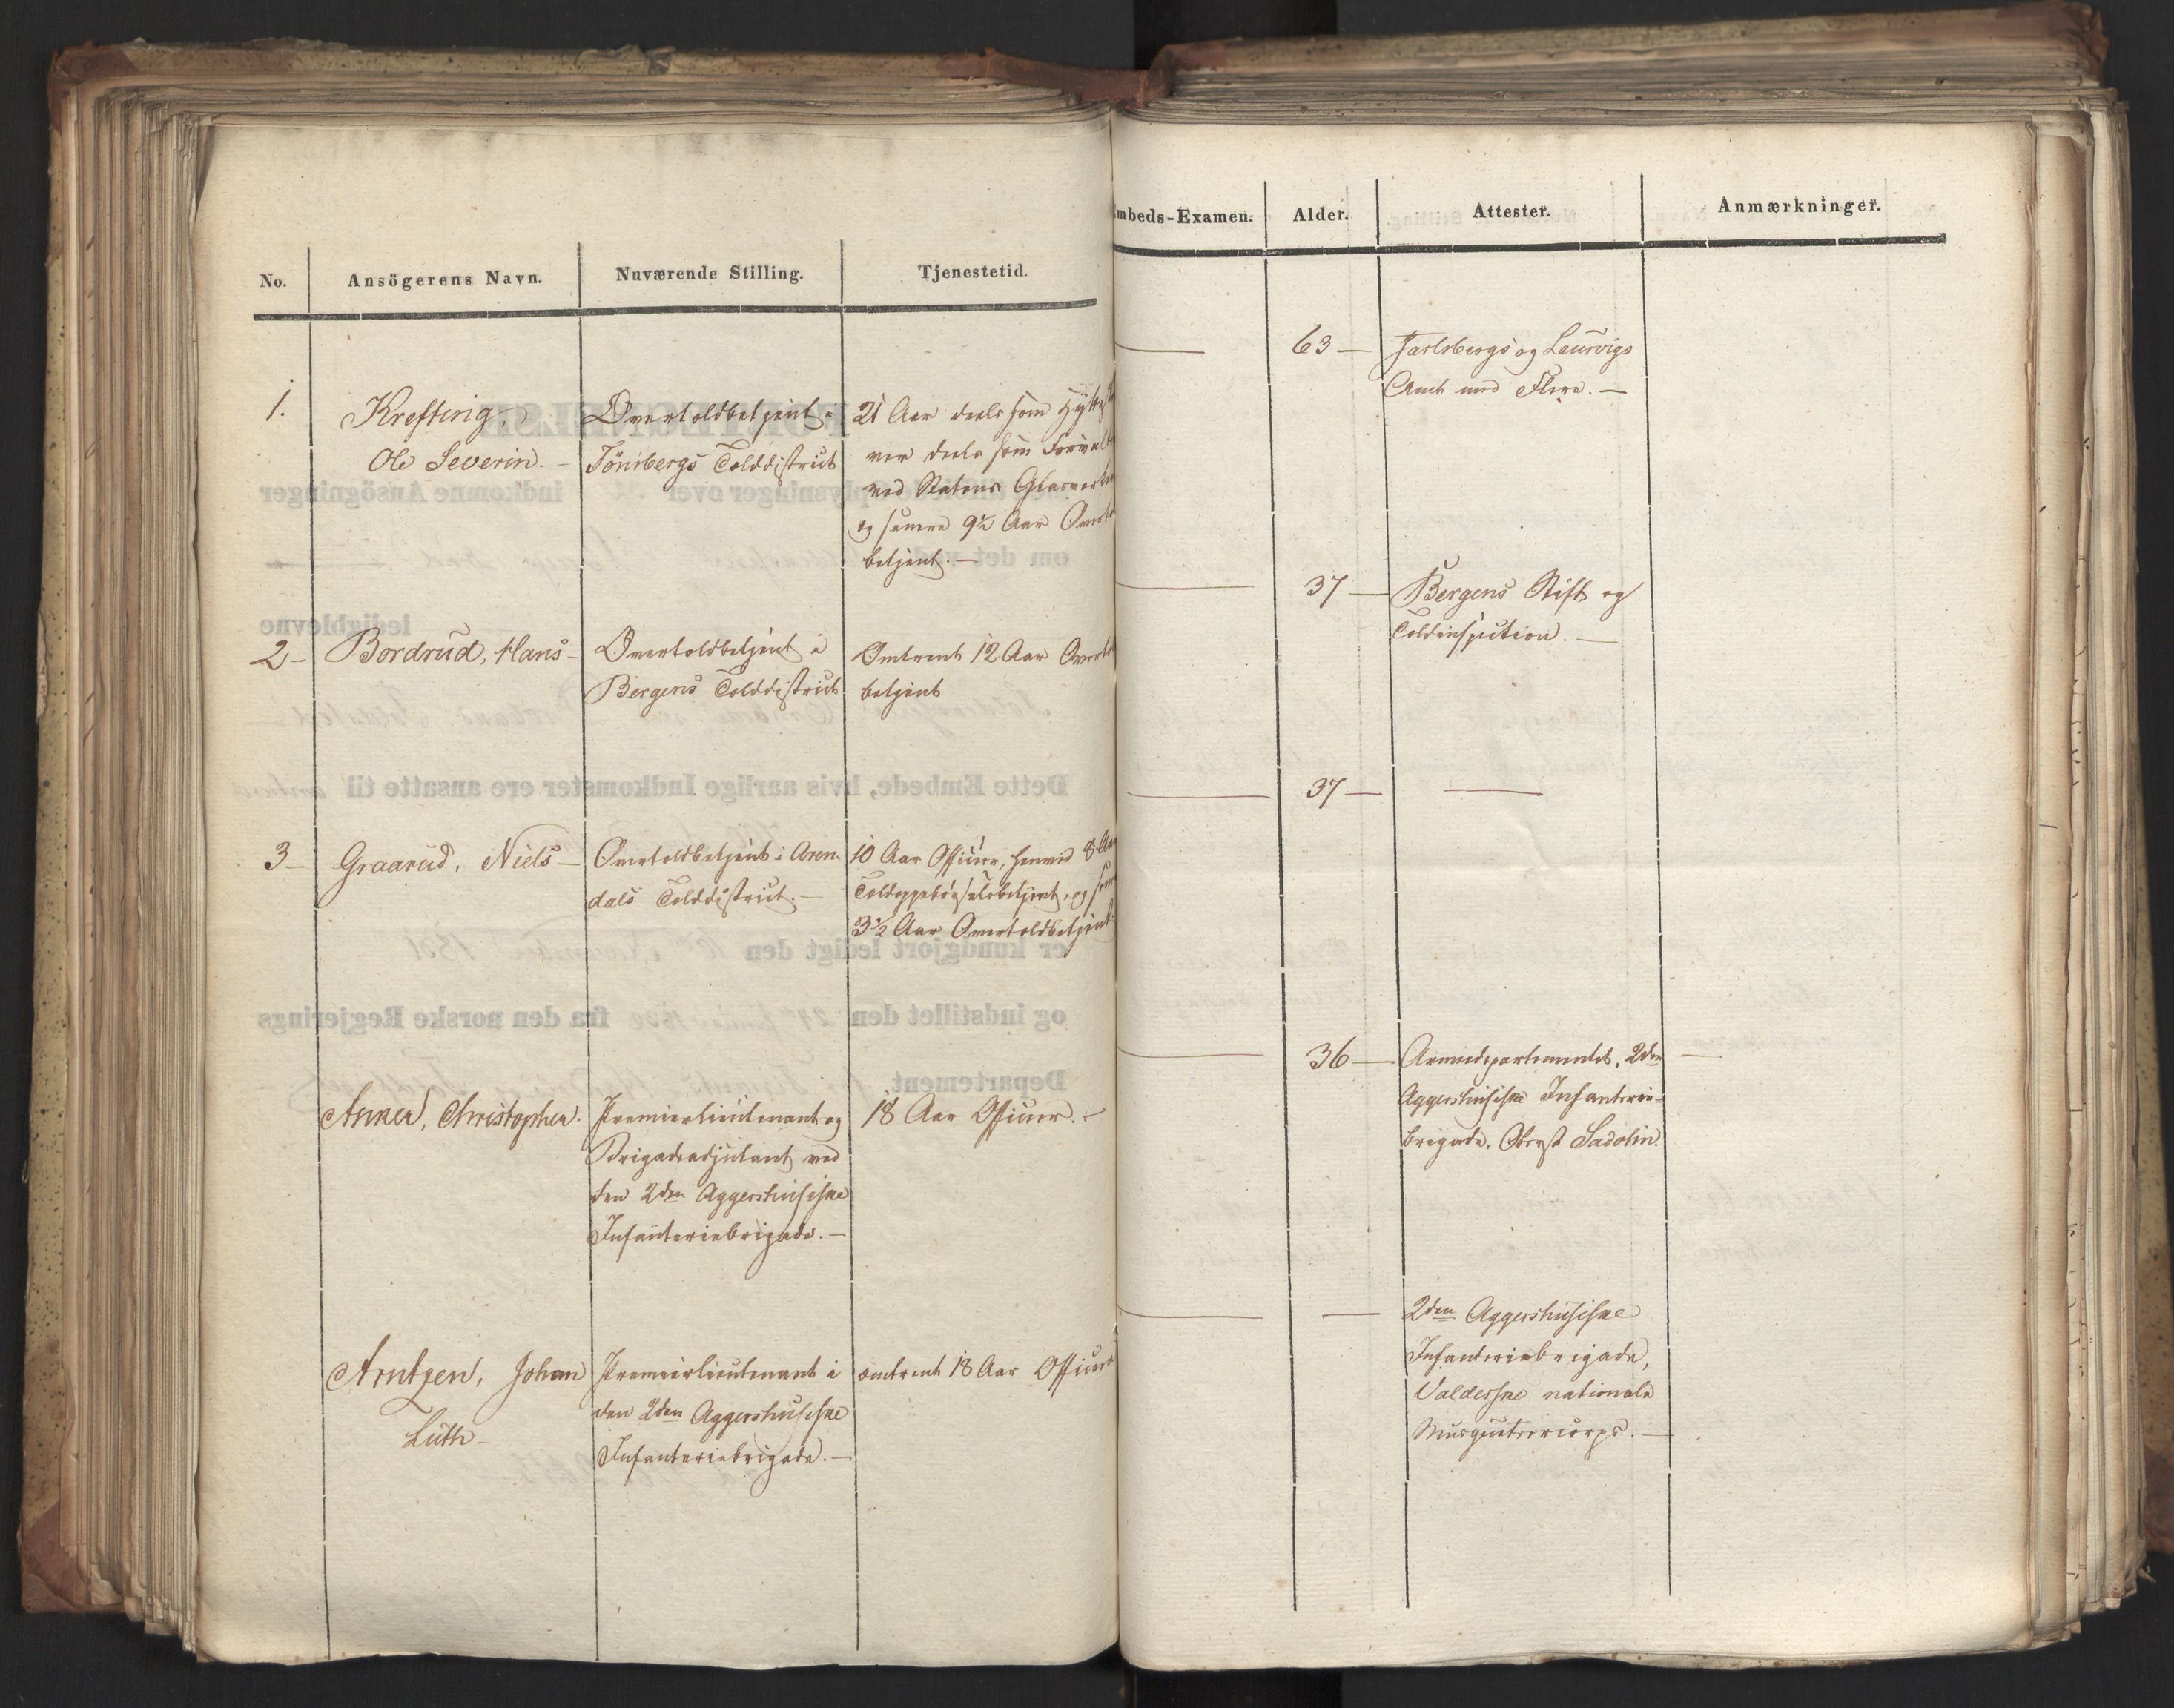 No.
Ansögerens Navn.
Nuværende Stilling.
Tjenestetid.
1.
Krefting,
Ole Severin. -
Overtoldbetjent i
Tönsbergs Tolddistrict
21 Aar deels som Hytte
ver deels som Forval
ved Statens Glasværker
og senere 9½ Aar Overt
betjent. -
2 -
Bordrud, Hans -
Overtoldbetjent i
Bergens Tolddistrict
Omtrent 12 Aar Overt
betjent
3 -
Graarud, Niels -
Overtoldbetjent i Aren-
dals Tolddistrict. -
10 Aar Officeer, henved 8 Aar
Toldoppebörselsbetjent, og sen
3½ Aar Overtoldbetjent
Anker, Christopher.
Premierlieutenant og
Brigadeadjutant ved
den 2den Aggershusiske
Infanteriebrigade. -
18 Aar Officeer. -
Arntzen, Johan
Lüth -
Premierlieutenant i
den 2den Aggershusiske
Infanteriebrigade. -
omtrent 18 Aar Officeer
mbeds-Examen.
Alder.
Attester.
Anmærkninger.
63 -
Jarlsbergs og Laurvigs
Amt med Flere. -
37 -
Bergens Stift og
Toldinspection. -
37 -
36 -
Armeedepartementet, 2den
Aggershusiske Infanterie-
brigade, Oberst Sadolin.
2den Aggershusiske
Infanteriebrigade,
Valderske nationale
Musqueteercorps. -